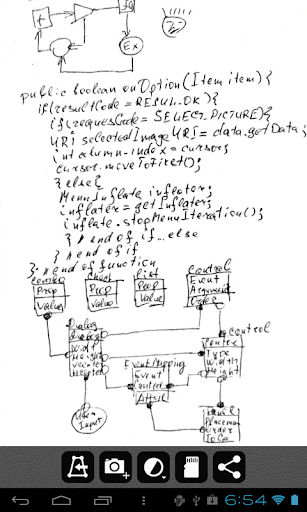 Ex
public boolean onOption(Item item){
if(resultCode = RESUL_OK){
if(requesCode = SELECT_PICTURE){
URI selectedImage URI = data.getData;
int column-index = cursor;
cursor.moveToFirct();
} else{
MenuInflate infloter;
inflater = getInflater;
inflate.stopMenuIteration();
} // end of if...else
} // end of if
}; // end of function
combo
Prop
Value
check
Prop
Value
list
Prop
Value
Control
Event
Argument
Order
Dialog
Width
Height
Event Mapping
Event
Control
Attrib
Control
Type
Width
Height
User
Input
Panel
Placement
6:54